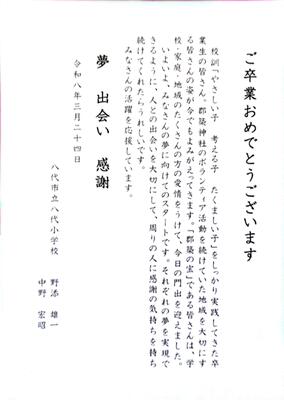 ご卒業おめでとうございます
校訓「やさしい子　考える子　たくましい子」をしっかり実践してきた卒
業生の皆さん。郡築神社のボランティア活動を続けていた地域を大切にす
る皆さんの姿が今でもよみがえってきます。「郡築の宝」である皆さんは、学
校・家庭・地域のたくさんの方の愛情をうけて、今日の門出を迎えました。
いよいよ、みなさんの夢に向けてのスタートです。それぞれの夢を実現で
きるように、人との出会いを大切にして、周りの人に感謝の気持ちを持ち
続けてくれたらうれしいです。
みなさんの活躍を応援しています。
夢　出会い　感謝
令和八年三月二十四日
八代市立八代小学校
野添　雄一
中野　宏昭